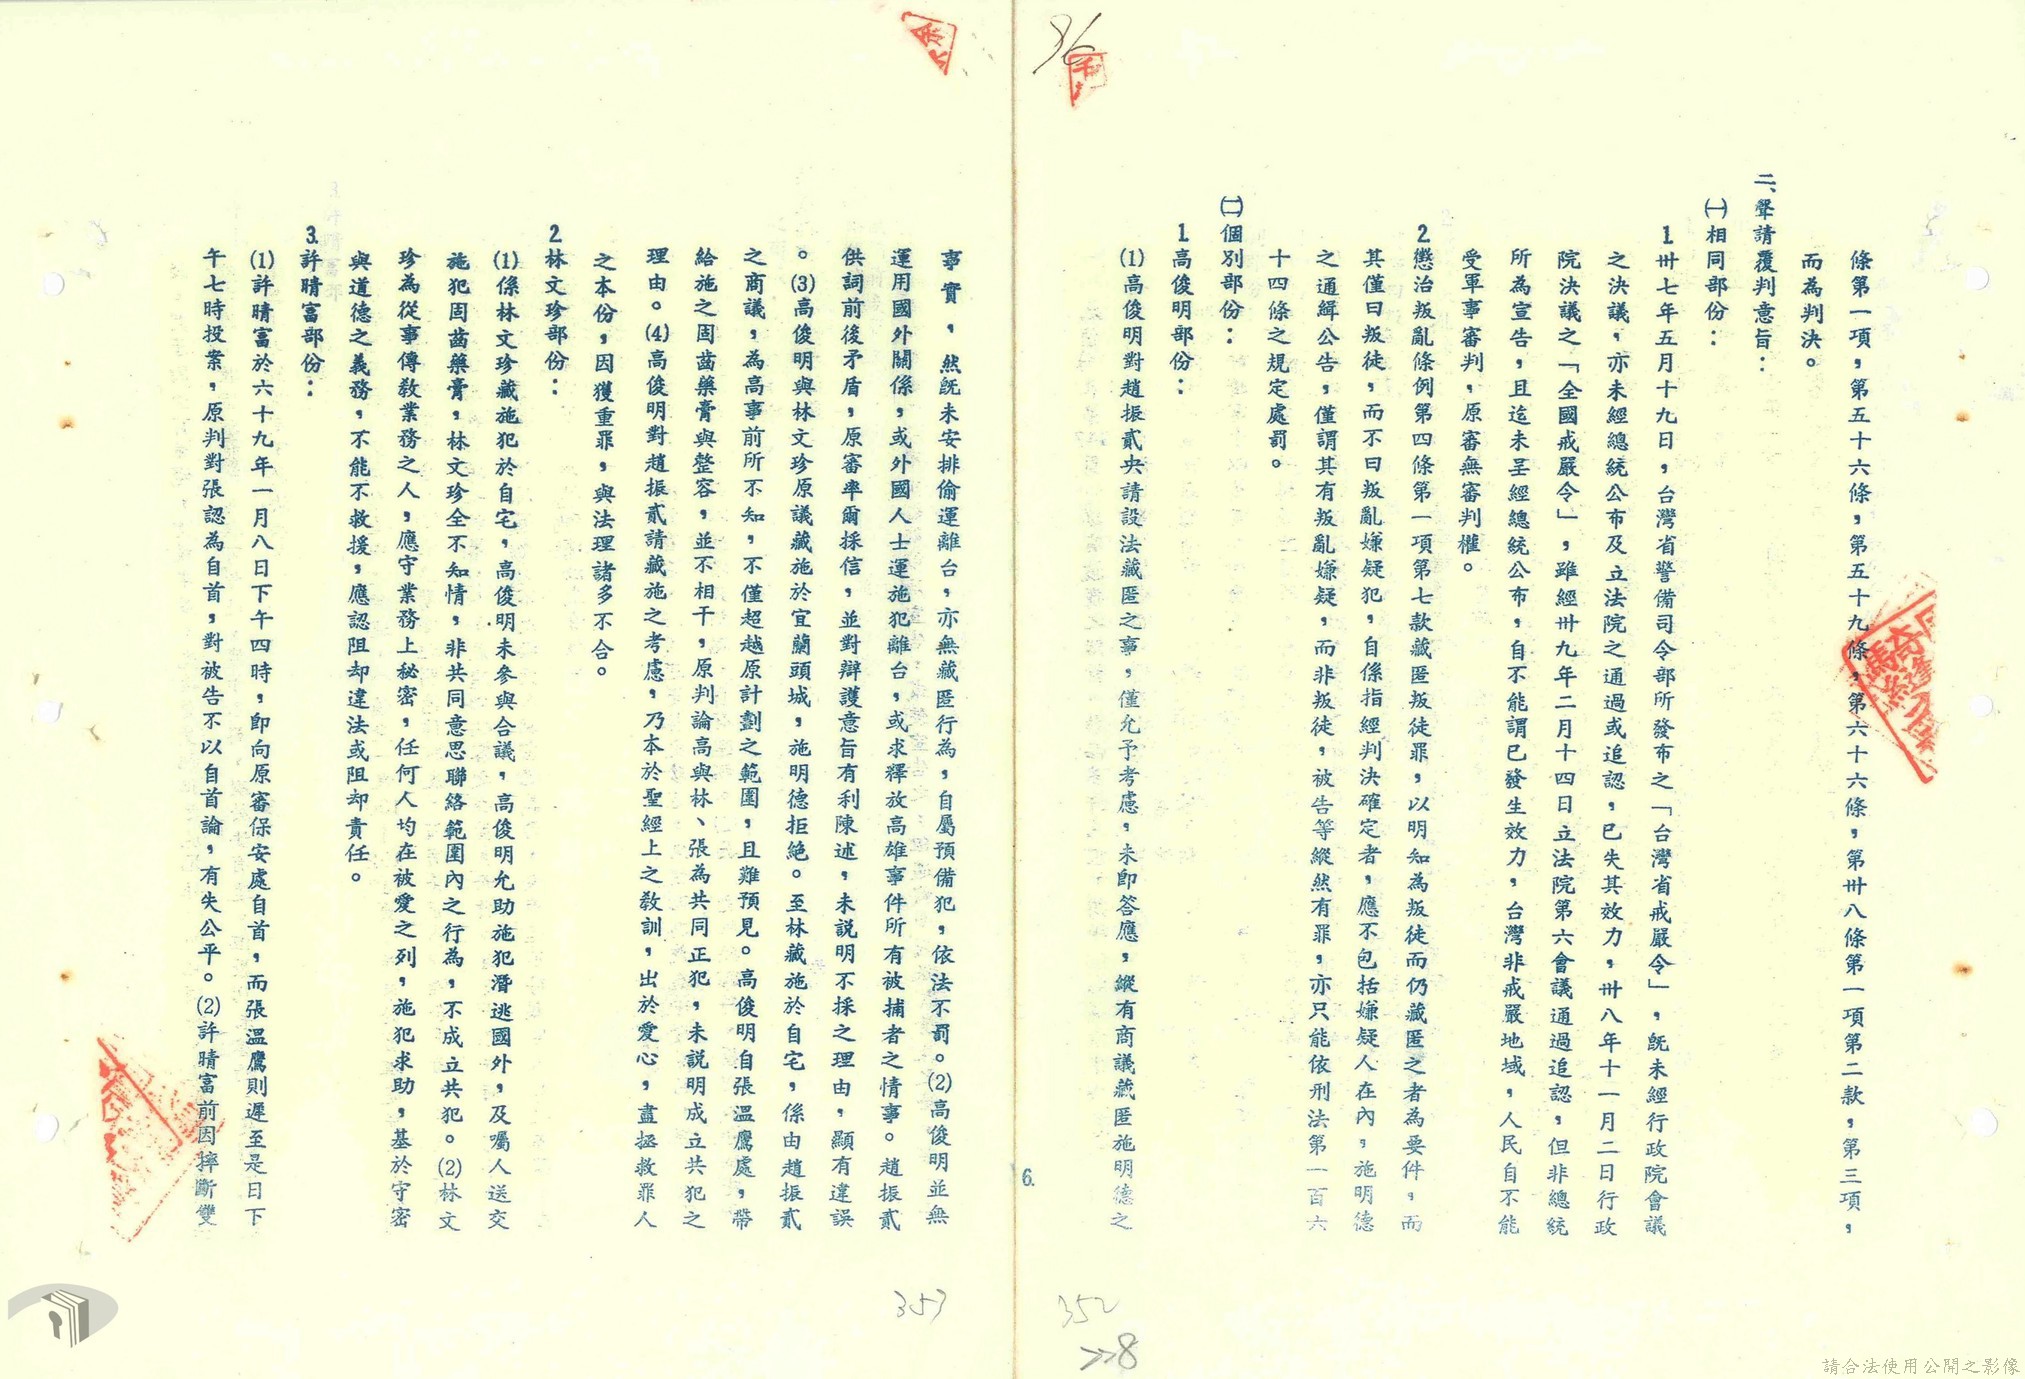 條第一項，第五十六條，第五十九條，第六十六條，第卅八條第一項第二款，第三項，
而為判決。
二、聲請覆判意旨：
㈠相同部份：
1.卅七年五月十九日，台灣省警備司令部所發布之「台灣省戒嚴令」，既未經行政院會議
之決議，亦未經總統公布及立法院之通過或追認，已失其效力，卅八年十一月二日行政
院決議之「全國戒嚴令」，雖經卅九年二月十四日立法院第六會議通過追認，但非總統
所為宣告，且迄未呈經總統公布，自不能謂已發生效力，台灣非戒嚴地域，人民自不能
受軍事審判，原審無審判權。
2.懲治叛亂條例第四條第一項第七款藏匿叛徒罪，以明知為叛徒而仍藏匿之者為要件，而
其僅曰叛徒，而不曰叛亂嫌疑犯，自係指經判決確定者，應不包括嫌疑人在內，施明德
之通緝公告，僅謂其有叛亂嫌疑，而非叛徒，被告等縱然有罪，亦只能依刑法第一百六
十四條之規定處罰。
㈡個別部份：
1.高俊明部份：
⑴高俊明對趙振貳央請設法藏匿之事，僅允予考慮，未即答應，縱有商議藏匿施明德之
6.
事實，然既未安排偷運離台，亦無藏匿行為，自屬預備犯，依法不罰。⑵高俊明並無
運用國外關係，或外國人士運施犯離台，或求釋放高雄事件所有被捕者之情事。趙振貳
供詞前後矛盾，原審率爾採信，並對辯護意旨有利陳述，未說明不採之理由，顯有違誤
。⑶高俊明與林文珍原議藏施於宜蘭頭城，施明德拒絕。至林藏施於自宅，係由趙振貳
之商議，為高事前所不知，不僅超越原計劃之範圍，且難預見。高俊明自張溫鷹處，帶
給施之固齒藥膏與整容，並不相干，原判論高與林、張為共同正犯，未說明成立共犯之
理由。⑷高俊明對趙振貳請藏施之考慮，乃本於聖經上之教訓，出於愛心，盡拯救罪人
之本份，因獲重罪，與法理諸多不合。
2.林文珍部份：
⑴係林文珍藏施犯於自宅，高俊明未參與合議，高俊明允助施犯潛逃國外，及囑人送交
施犯固齒藥膏，林文珍全不知情，非共同意思聯絡範圍內之行為，不成立共犯。⑵林文
珍為從事傳教業務之人，應守業務上秘密，任何人均在被愛之列，施犯求助，基於守密
與道德之義務，不能不救援，應認阻却違法或阻却責任。
3.許晴富部份：
⑴許晴富於六十九年一月八日下午四時，即向原審保安處自首，而張溫鷹則遲至是日下
午七時投案，原判對張認為自首，對被告不以自首論，有失公平。⑵許晴富前因摔斷雙
353
352
請合法使用公開之影像